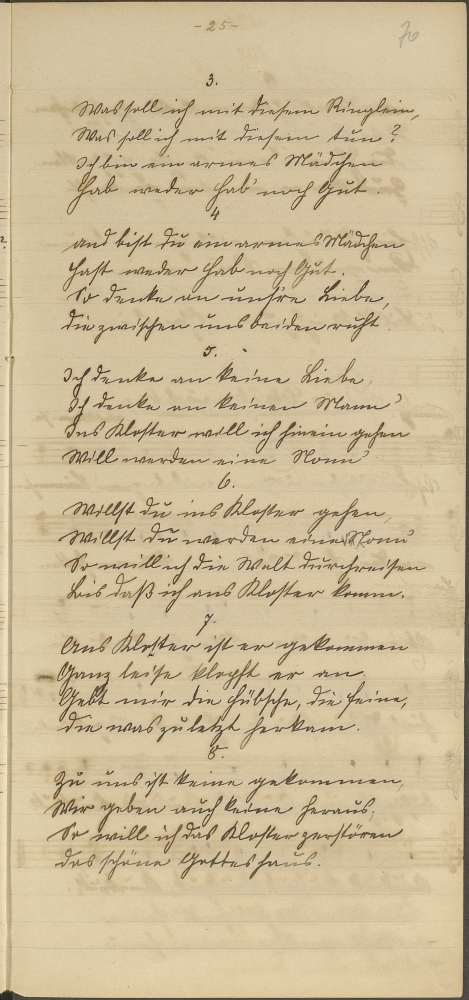 - 25 -
70
3.
Was soll ich mit diesem Ringlein,
Was soll ich mit diesem tun?
Ich bin ein armes Mädchen
Hab weder Hab' noch Gut.
4
und bist du ein armes Mädchen
Hast weder Hab noch Gut.
So denke an unsre Liebe,
die zwischen uns beiden ruht
5.
Ich denke an keine Liebe,
Ich denke an keinen Mann'
Ins Kloster will ich hinein gehen
Will werden eine Nonn'
6.
Willst du ins Kloster gehen,
Willst du werden eine Nonn'
So will ich die Welt durchreisen
Bis daß ich ans Kloster komm.
7.
Ans Kloster ist er gekommen
Ganz leise klopft er an.
Gebt mir die hübsche, die feine,
die was zuletzt herkam.
8.
Zu uns ist keine gekommen,
Wir geben auch keine heraus.
So will ich das Kloster zerstören
das schöne Gotteshaus.